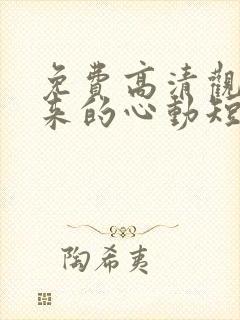 免費高清觀
來的心動短
陶希夷